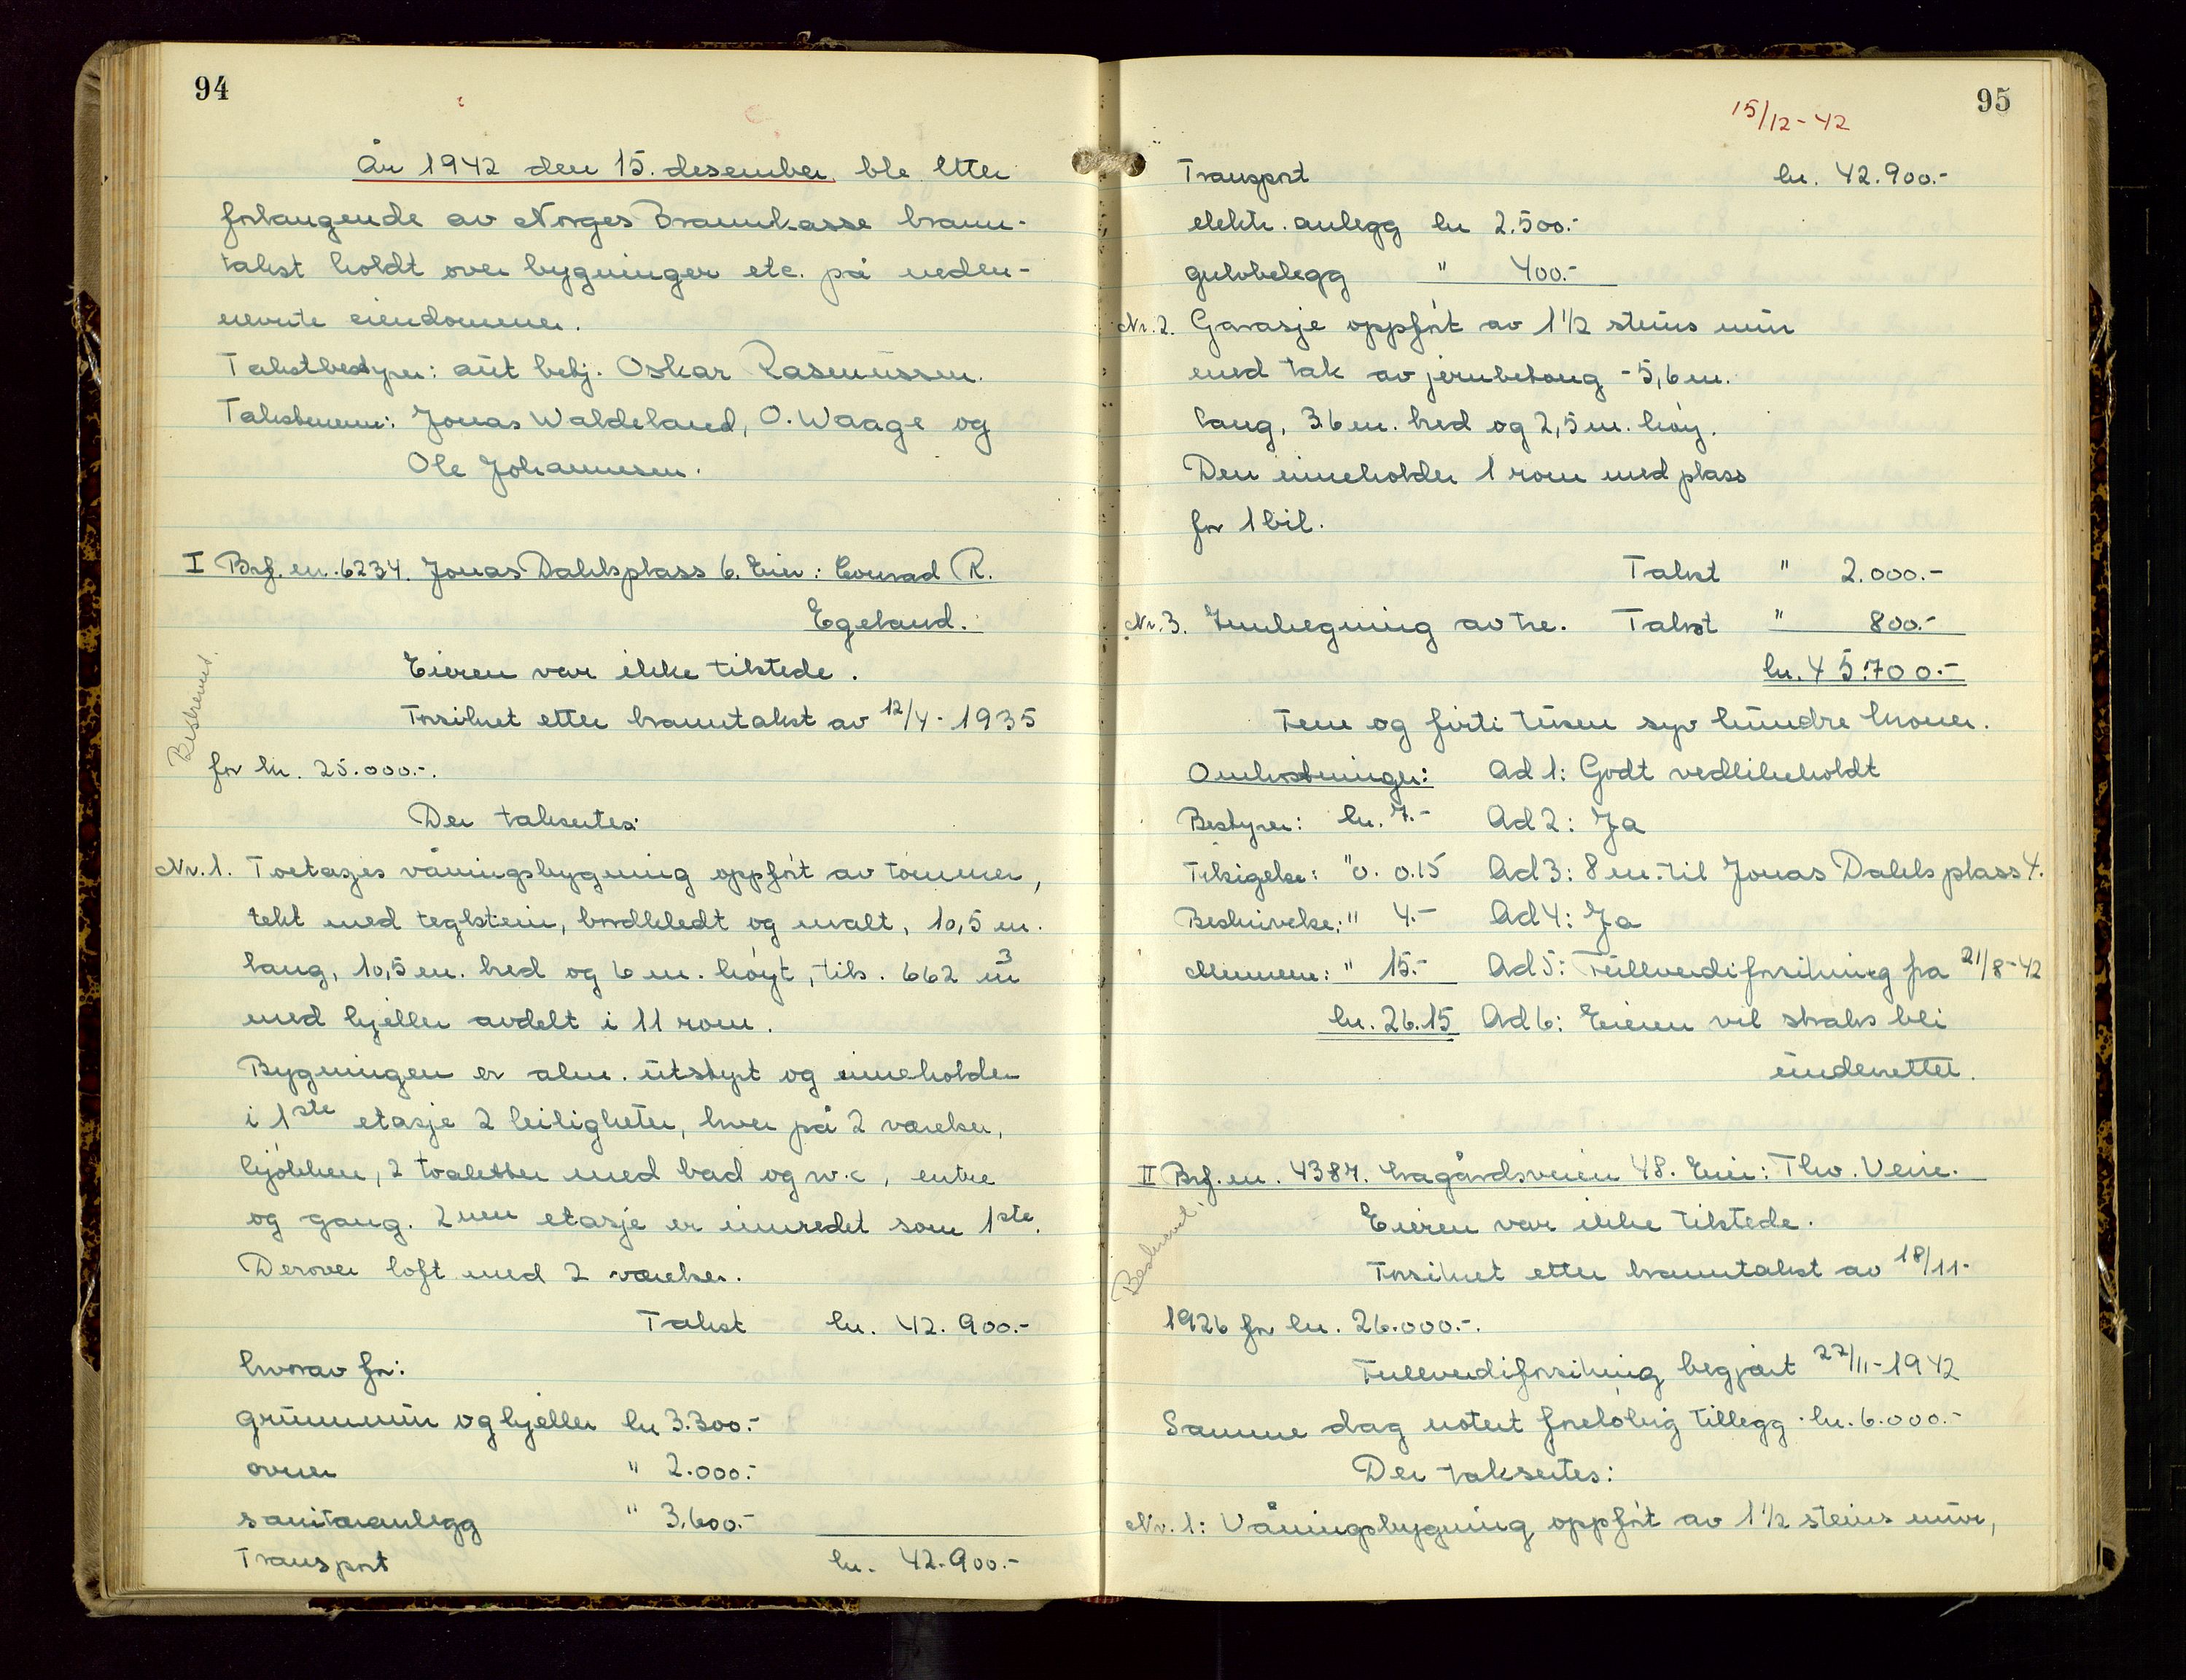 94
År 1942 den 15. desember ble etter
forlangende av Norges Brannkasse brann-
takst holdt over bygninger etc. på neden-
nevnte eiendommer.
Takstbestyrer: aut betj. Oskar Rasmussen.
Takstmenn: Jonas Waldeland, O. Waage og
Ole Johannesen.
I Brf. nr. 6234. Jonas Dahlsplass 6. Eier: Conrad R.
Egeland.
Eieren var ikke tilstede.
Forsikret etter branntakst av 12/4-1935
for kr. 25.000.-.
Beskrevet.
Der takseres:
Nr. 1. Toetasjes våningsbygning oppført av tømmer,
tekt med teglstein, bordkledt og malt, 10,5 m.
lang, 10,5 m. bred og 6 m. høyt, tils. 662 m3
med kjeller avdelt i 11 rom.
Bygningen er alm. utstyrt og inneholder
i 1ste etasje 2 leiligheter, hver på 2 værelser,
kjøkken, 2 toaletter med bad og w.c, entre
og gang. 2nen etasje er innredet som 1ste.
Derover loft med 2 værelser.
Takst kr. 42.900.-
hvorav for:
grunnmur og kjeller kr 3.300.-
ovner " 2.000.-
sanitæranlegg " 3.600.-
Transport kr. 42.900.-
95
15/12-42
Transport kr. 42.900.-
elektr. anlegg kr 2.500.-
gulvbelegg " 400.-
Nr. 2. Garasje oppført av 1 1/2 steins mur
med tak av jernbetong - 5,6 m.
lang, 3.6 m. bred og 2,5 m. høy.
Den inneholder 1 rom med plass
for 1 bil.
Takst " 2.000.-
Nr. 3. Innhegning av tre. Takst " 800.-
kr. 45.700.-
Fem og firti tusen syv hundre kroner.
Omkostninger: Ad 1: Godt vedlikeholdt
Bestyrer: kr. 7.- Ad 2: Ja
Tilsigelse: " 0.15 Ad 3: 8 m. til Jonas Dahls plass 4.
Beskrivelse: " 4.- Ad 4: Ja
Mennene: " 15.- Ad 5: Fullverdiforsikring fra 21/8-42
kr. 26.15 Ad 6: Eieren vil straks bli
underrettet.
II Brf. nr. 4387. Lagårdsveien 48. Eier: Thv. Veire.
Eieren var ikke tilstede.
Beskrevet.
Forsikret etter branntakst av 18/11-
1926 for kr. 26.000.-.
Fullverdiforsikring begjært 27/11-1942
Samme dag notert foreløbig tillegg kr. 6.000.-
Der takseres:
Nr. 1: Våningsbygning oppført av 1 1/2 steins mur,